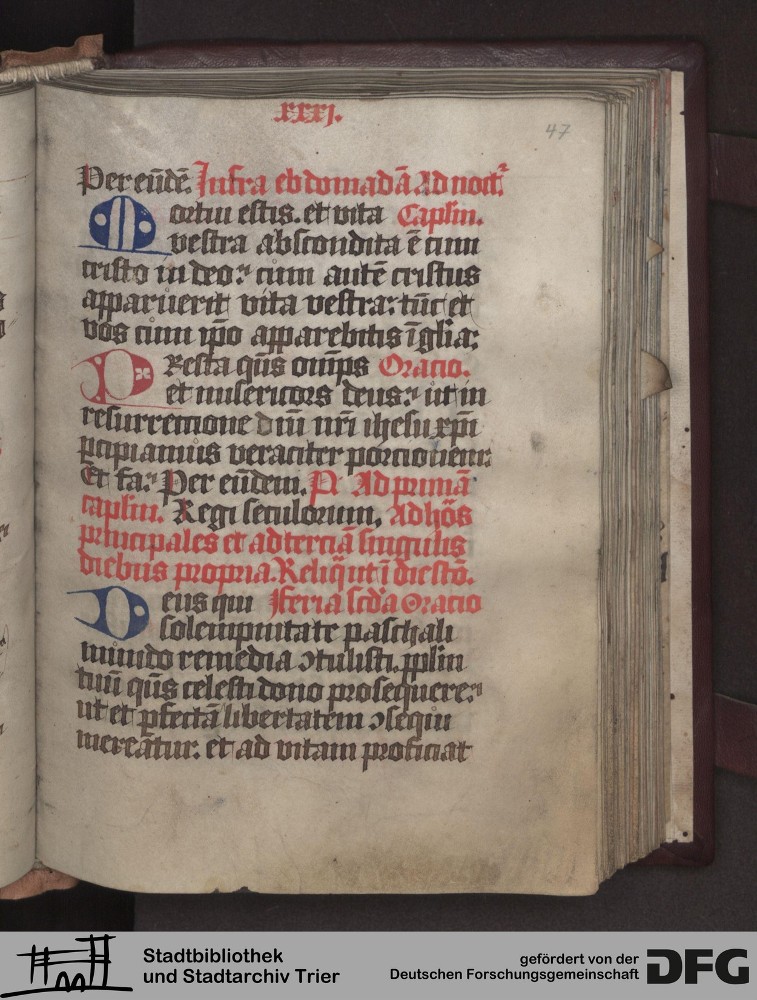 xxxj.
47
Per eūdē. Infra ebdomadā Ad noct
Mortui estis. et vita Capl'm.
vestra abscondita ē cum
cristo in deo: cum autē cristus
apparuerit vita vestra: tūc et
vos cum ip̄o apparebitis ī gl'ia:
Presta q̄s om̄ps Oracio.
et misericors deus: ut in
resurrectione dn̄i nr̄i ihesu xp̄i
p̄cipiamus veraciter porcionem:
Et fa: Per eūdem. Ad primā
capl'm. Regi seculorum, Ad hōs
principales et ad terciā singulis
diebus propria. Reliq̄ ut ī die sct̄o.
Deus qui feria scd'a Oracio
solempnitate paschali
mundo remedia ꝯtulisti. ppl'm
tuū q̄s celesti dono prosequere:
ut et ꝑfectā libertatem ꝯsequi
mereātur: et ad vitam proficiat
Stadtbibliothek
und Stadtarchiv Trier
gefördert von der
Deutschen Forschungsgemeinschaft
DFG